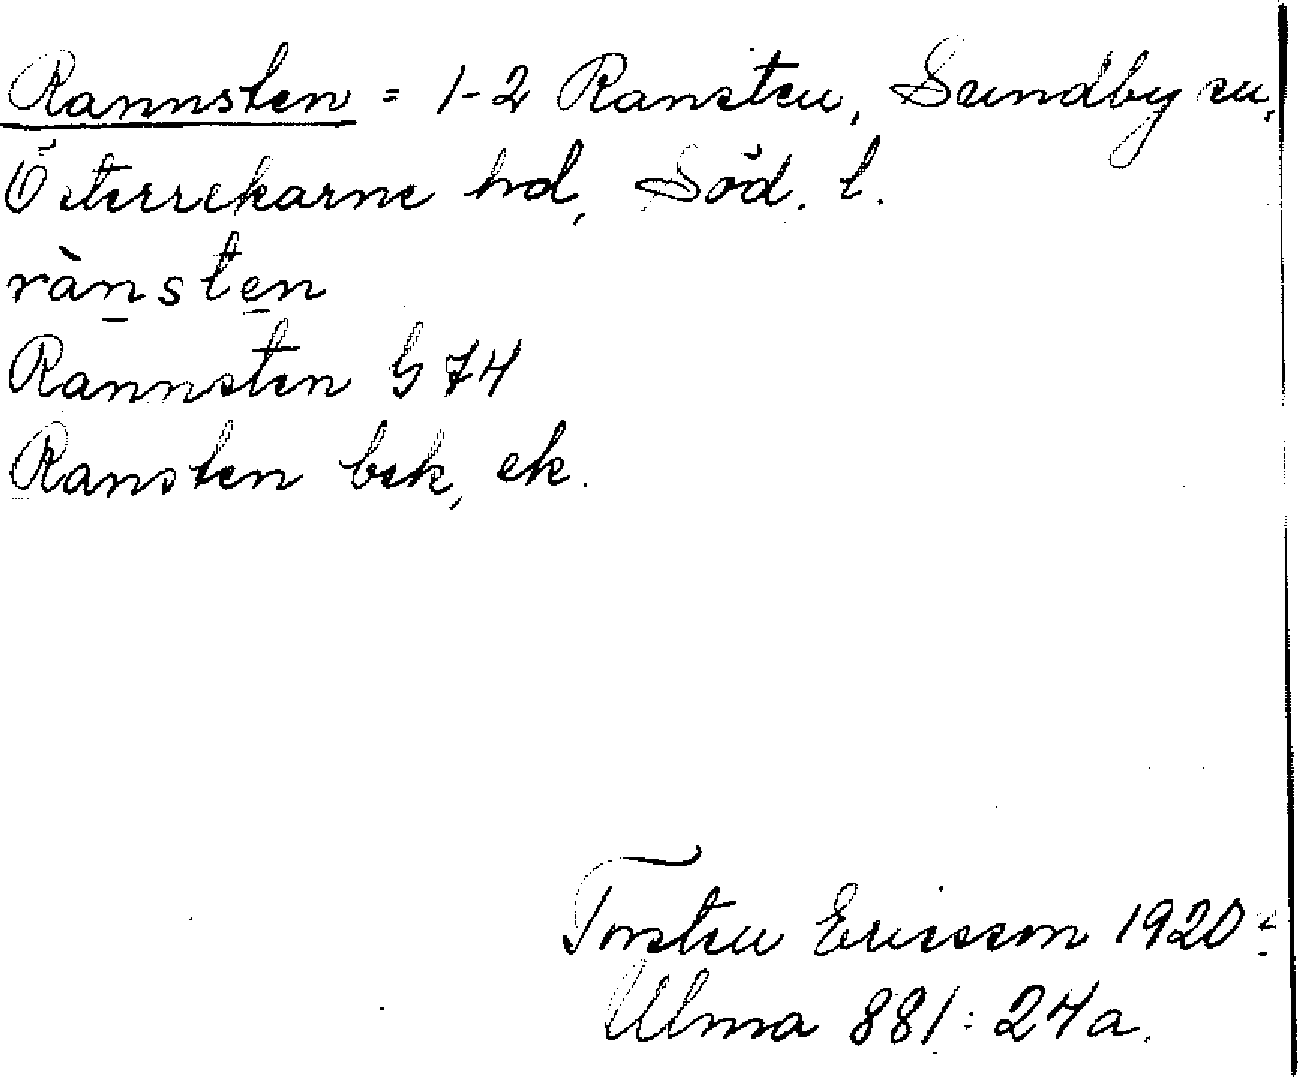 Rannsten = 1-2 Ransten, Sundby sn,
Österrekarne hd, Söd. l.
rànsten
Rannsten G 74
Ransten bek, ek.
Torsten Ericsson 1920
Ulma 881:24a.